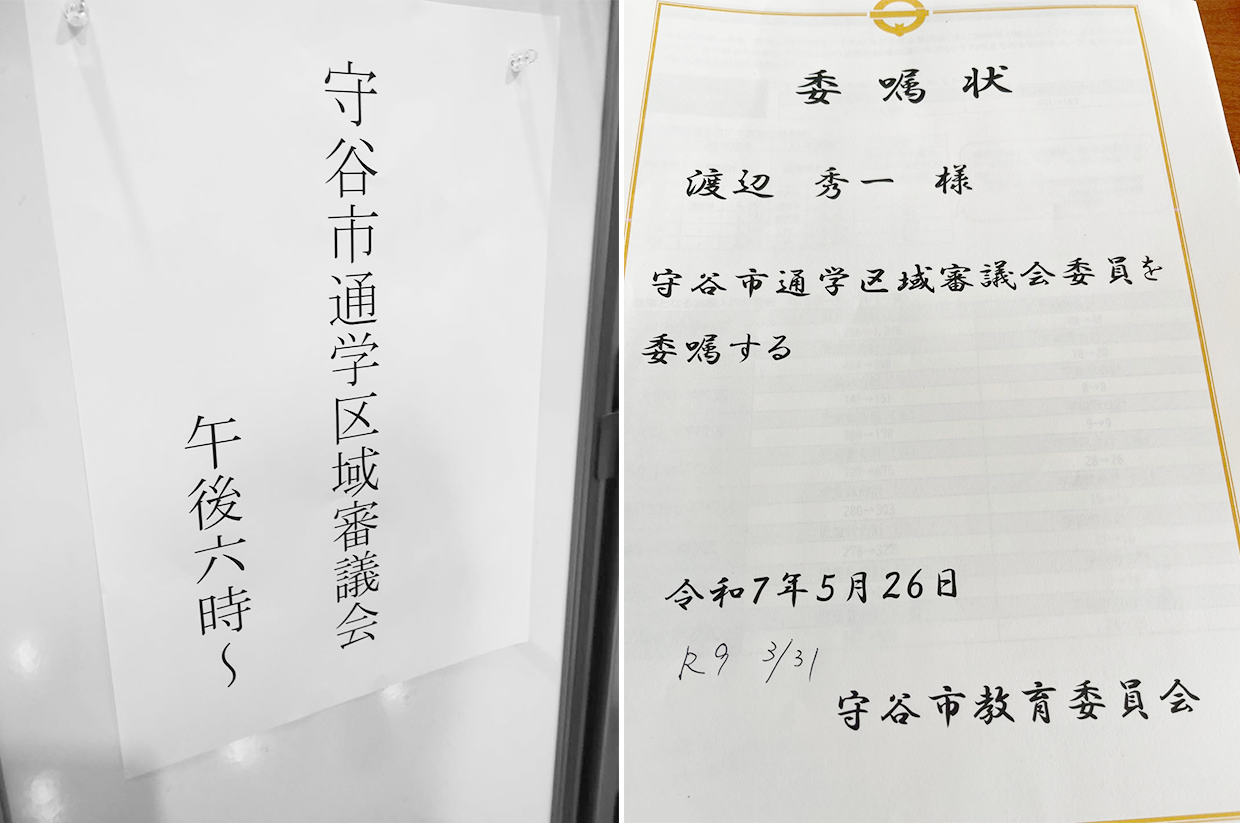 守谷市通学区域審議会
午後六時〜
委嘱状
渡辺 秀一 様
守谷市通学区域審議会委員を
委嘱する
令和7年5月26日
R9 3/31
守谷市教育委員会